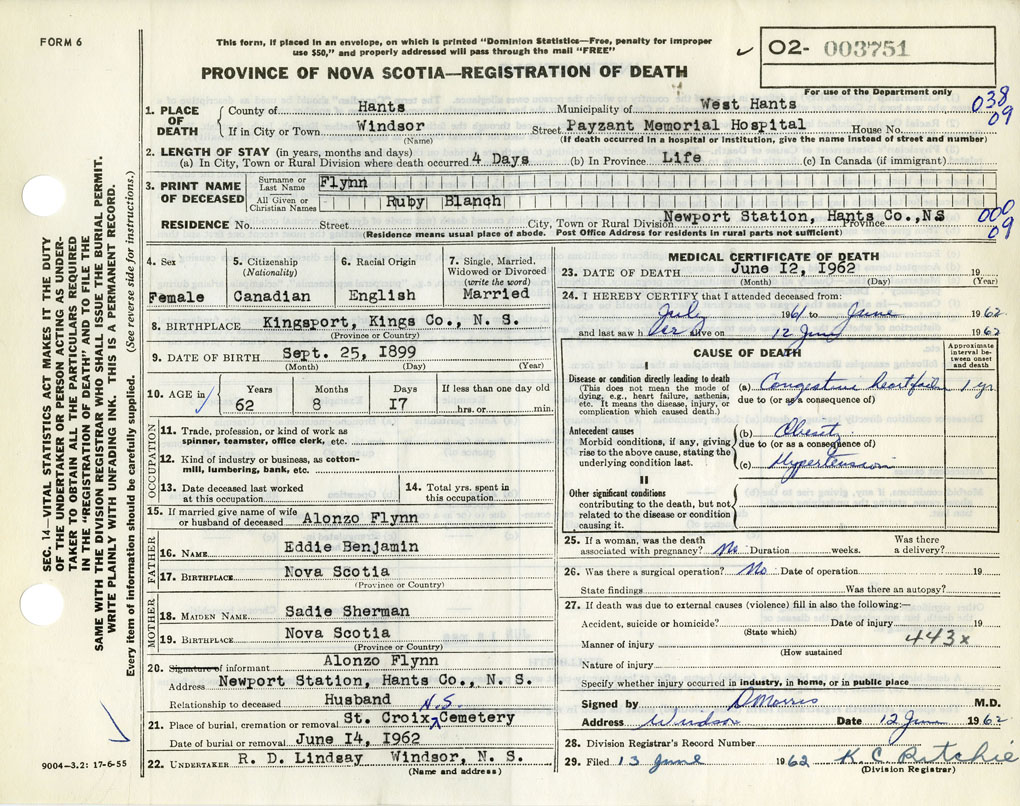 FORM 6
This form, if placed in an envelope, on which is printed "Dominion Statistics—Free, penalty for improper
use $50," and properly addressed will pass through the mail "FREE"
PROVINCE OF NOVA SCOTIA—REGISTRATION OF DEATH
O2- 003751
For use of the Department only
038
09
1. PLACE OF DEATH County of Hants Municipality of West Hants
If in City or Town Windsor Street Payzant Memorial Hospital House No.
(Name) (If death occurred in a hospital or institution, give the name instead of street and number)
2. LENGTH OF STAY (in years, months and days)
(a) In City, Town or Rural Division where death occurred 4 Days (b) In Province Life (c) In Canada (if immigrant)
3. PRINT NAME OF DECEASED Surname or Last Name Flynn
All Given or Christian Names Ruby Blanch
RESIDENCE No. Street City, Town or Rural Division Newport Station, Hants Co.,NS Province
(Residence means usual place of abode. Post Office Address for residents in rural parts not sufficient)
000
09
4. Sex Female
5. Citizenship (Nationality) Canadian
6. Racial Origin English
7. Single, Married, Widowed or Divorced (write the word) Married
8. BIRTHPLACE Kingsport, Kings Co., N. S.
(Province or Country)
9. DATE OF BIRTH Sept. 25, I899
(Month) (Day) (Year)
10. AGE in Years 62 Months 8 Days I7 If less than one day old hrs. or min.
OCCUPATION
11. Trade, profession, or kind of work as
spinner, teamster, office clerk, etc.
12. Kind of industry or business, as cotton-
mill, lumbering, bank, etc.
13. Date deceased last worked
at this occupation
14. Total yrs. spent in
this occupation
15. If married give name of wife
or husband of deceased Alonzo Flynn
FATHER
16. NAME Eddie Benjamin
17. BIRTHPLACE Nova Scotia
(Province or Country)
MOTHER
18. MAIDEN NAME Sadie Sherman
19. BIRTHPLACE Nova Scotia
(Province or Country)
20. Signature of informant Alonzo Flynn
Address Newport Station, Hants Co., N. S.
Relationship to deceased Husband
N.S.
21. Place of burial, cremation or removal St. Croix Cemetery
Date of burial or removal June I4, I962
22. UNDERTAKER R. D. Lindsay Windsor, N. S.
(Name and address)
MEDICAL CERTIFICATE OF DEATH
23. DATE OF DEATH June I2, I962 19
(Month) (Day) (Year)
24. I HEREBY CERTIFY that I attended deceased from:
July 1961 to June 1962
and last saw her alive on 12 June 1962
CAUSE OF DEATH
Approximate interval between onset and death
I
Disease or condition directly leading to death
(This does not mean the mode of
dying, e.g., heart failure, asthenia,
etc. It means the disease, injury, or
complication which caused death.)
(a) Congestive Heartfailure 1 yr
due to (or as a consequence of)
Antecedent causes
Morbid conditions, if any, giving
rise to the above cause, stating the
underlying condition last.
(b) Obesity
due to (or as a consequence of)
(c) Hypertension
II
Other significant conditions
contributing to the death, but not
related to the disease or condition
causing it.
25. If a woman, was the death
associated with pregnancy? No Duration weeks. Was there
a delivery?
26. Was there a surgical operation? No Date of operation 19
State findings Was there an autopsy?
27. If death was due to external causes (violence) fill in also the following:—
Accident, suicide or homicide? Date of injury 19
(State which)
443x
Manner of injury
(How sustained
Nature of injury
Specify whether injury occurred in industry, in home, or in public place
Signed by D Morris M.D.
Address Windsor Date 12 June 1962
28. Division Registrar's Record Number
29. Filed 13 June 1962 K. C. Ritchie
(Division Registrar)
SEC. 14—VITAL STATISTICS ACT MAKES IT THE DUTY
OF THE UNDERTAKER OR PERSON ACTING AS UNDER-
TAKER TO OBTAIN ALL THE PARTICULARS REQUIRED
IN THE "REGISTRATION OF DEATH" AND TO FILE THE
SAME WITH THE DIVISION REGISTRAR WHO SHALL ISSUE THE BURIAL PERMIT.
WRITE PLAINLY WITH UNFADING INK. THIS IS A PERMANENT RECORD.
Every item of information should be carefully supplied. (See reverse side for instructions.)
9004—3.2: 17-6-55